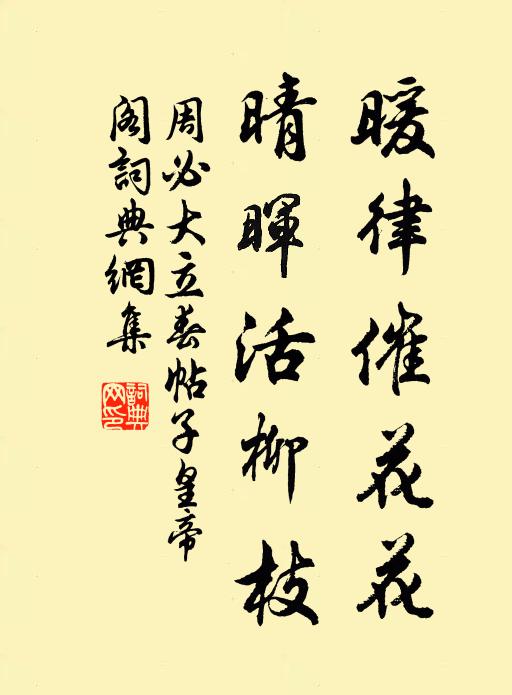 暖律催花花
晴暉活柳枝
周必大立春帖子皇帝
閣詞典網集
詞典网印